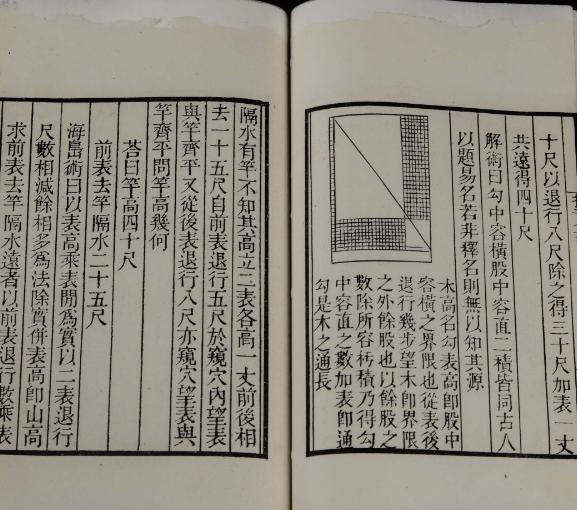 十尺以退行八尺除之得三十尺加表一丈
共遠得四十尺
解術曰勾中容橫股中容直二積皆同古人
以題易名若非釋名則無以知其源
木高名勾表高卽股中
容橫之界限也從表後
退行幾步望木卽界限
之外餘股也以餘股之
數除所容栟積乃得勾
中容直之數加表卽通
勾是木之通長
隔水有竿不知其高立二表各高一丈前後相
去一十五尺自前表退行五尺於窺穴內望表
與竿齊平又從後表退行八尺亦窺穴望表與
竿齊平問竿高幾何
荅曰竿高四十尺
前表去竿隔水二十五尺
海島術曰以表高乘表閒爲實以二表退行
尺數相減餘相多爲法除實倂表高卽山高
求前表去竿隔水遠者以前表退行數乘表